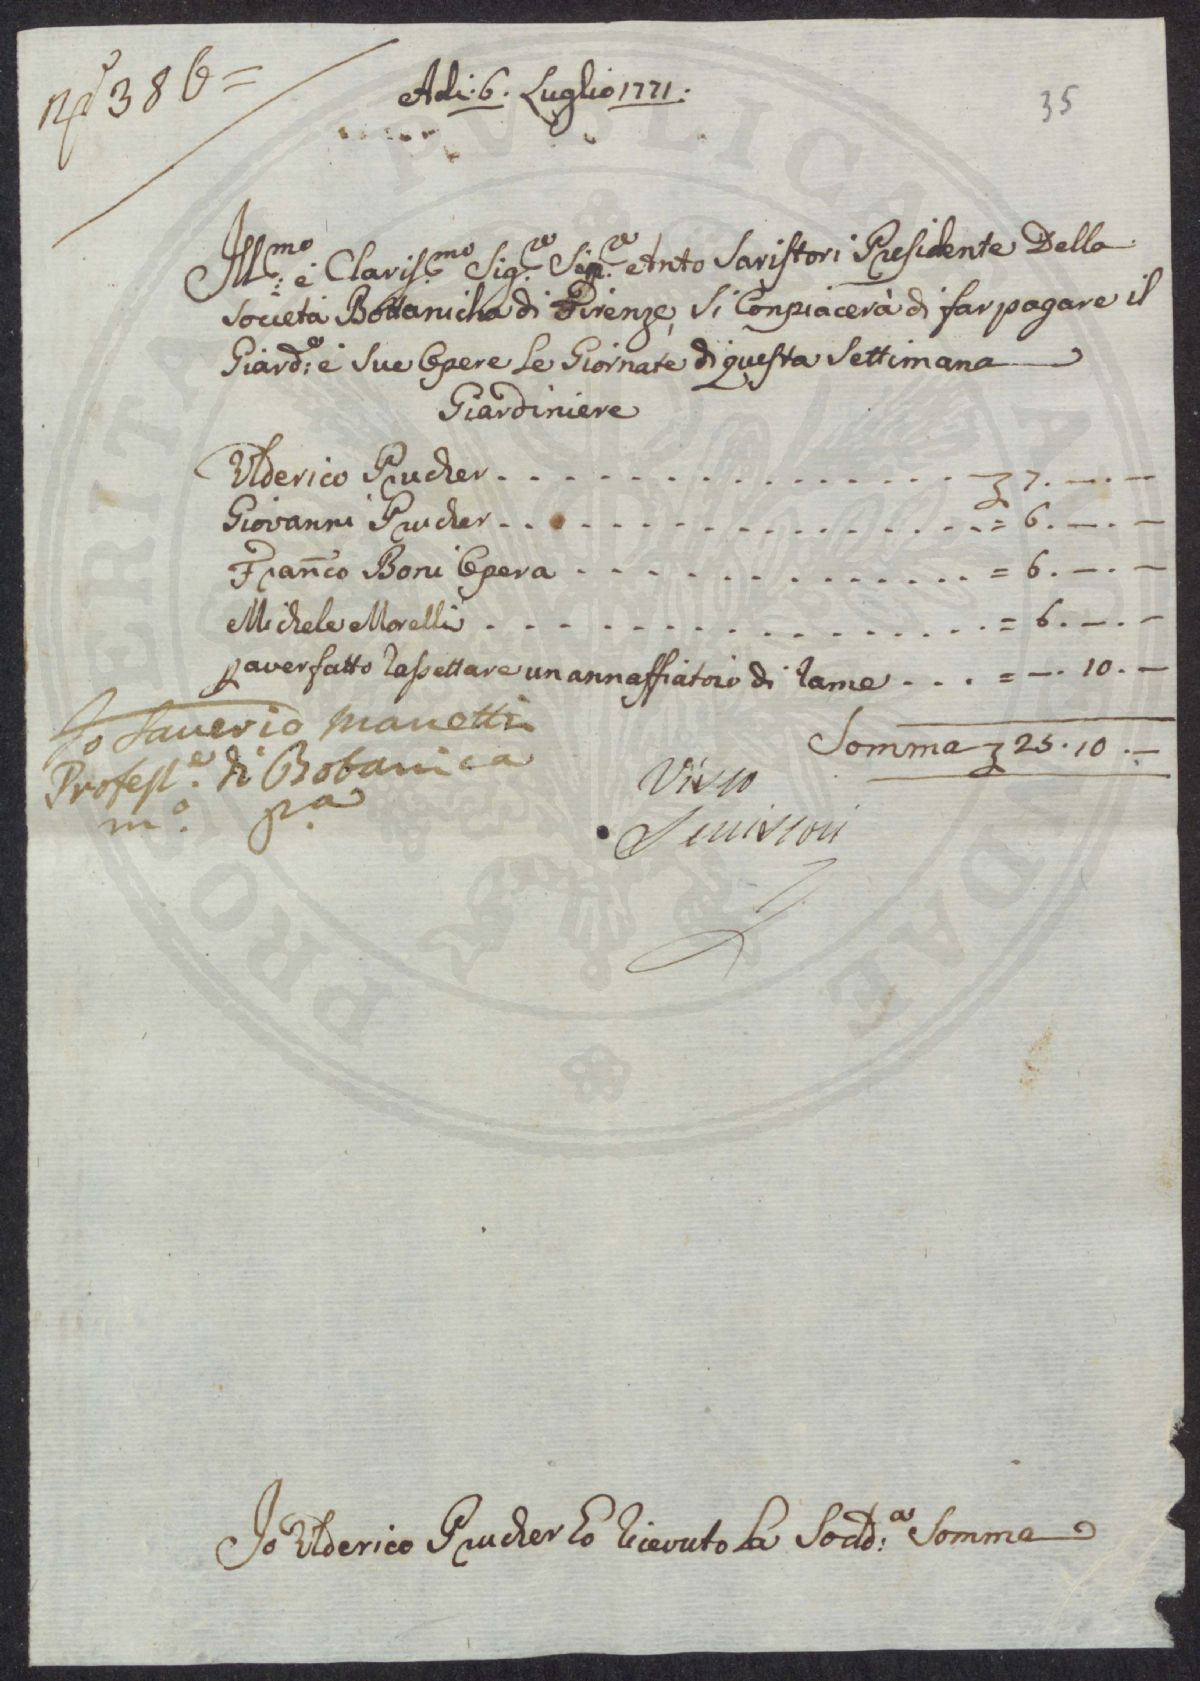 N.º 386=
Adi: 6. Luglio 1771:
35
Ill.mo e Claris.mo Sig.re Sen.re Anto Saristori Presidente Della
Società Bottanicha di Firenze, Si Conpiacerà di far pagare il
Giard.e: e Sue Opere Le Giornate di questa Settimana
Giardiniere
Ulderico Prucher - - - - - - - - - - - - - - £ 7. —. —
Giovanni Prucher - - - - - - - - - - - - - - = 6. —. —
Franco Boni Opera - - - - - - - - - - - - = 6. —. —
Michele Morelli - - - - - - - - - - - - - - = 6. —. —
p aver fatto Rassettare un annaffiatoio di Rame - - - = —. 10. —
Somma £ 25. 10. —
Io Saverio Manetti
Profess.e di Botanica
m.o p.a
Visto
Seristori
Io Ulderico Prucher Ho Ricevuto La Sodd:a Somma
PRO PUBLICA